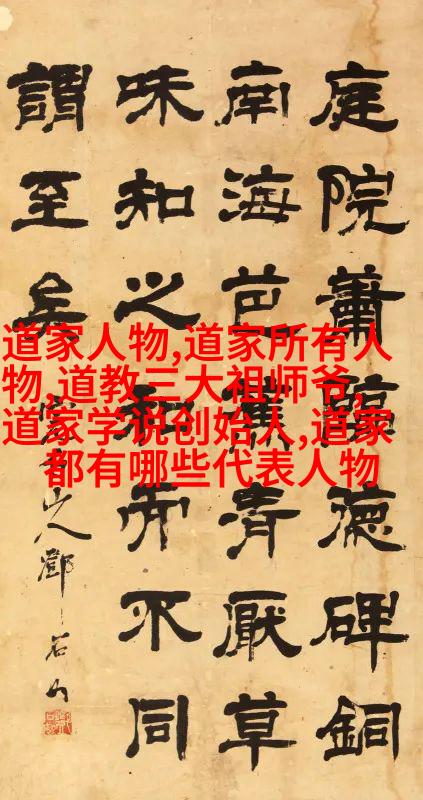 庭院蕭德碑銅
南海芭蕉清厭草
味知之而不同
謂至矣
山人鄧石如
道家人物,道家所有人
物,道教三大祖师爷,
道家学说创始人,道家
都有哪些代表人物